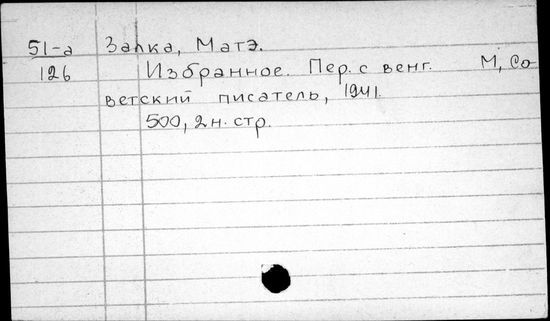 51-а Залка, Матэ.
126 Избранное. Пер. с венг. М, Со
ветский писатель, 1941.
500, 2 н. стр.